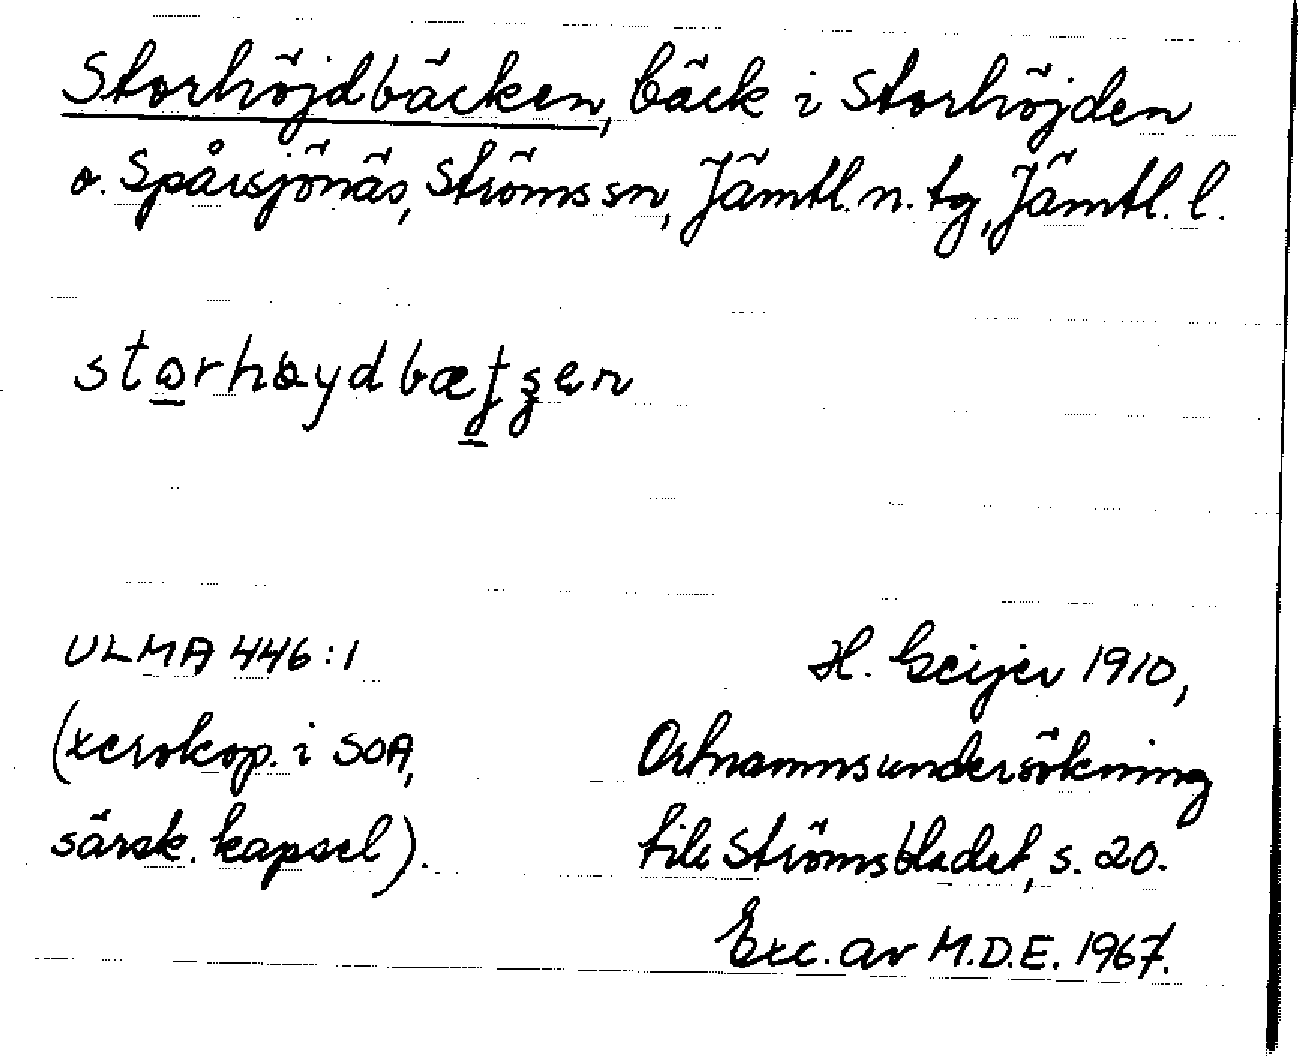 Storhöjdbäcken, bäck i Storhöjden
o. Spårsjönäs, Ströms sn, Jämtl. n. tg, Jämtl. l.
ULMA 446:1
(xerokop. i SOA,
särsk. kapsel).
H. Geijer 1910,
Ortnamnsundersökning
till Strömsbladet, s. 20.
Exc. av M.D.E. 1967.